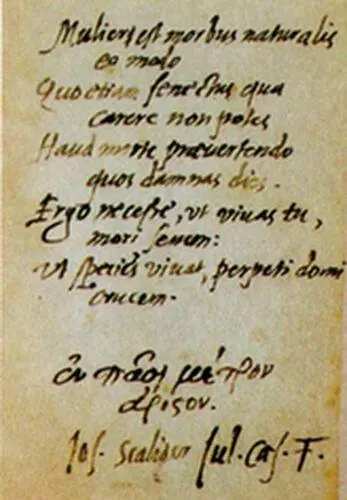 Mulier est morbus naturalis
eo modo
Quo etiam senectus qua
carere non potes
Haud morte prævertendo
quos damnas dies.
Ergo necesse, ut vivas tu,
mori senem:
Ut species vivat, perpeti domi
crucem.
ἐν πᾶσι μέτρον
ἄριστον.
Jos. Scaliger Jul. Cæs. F.